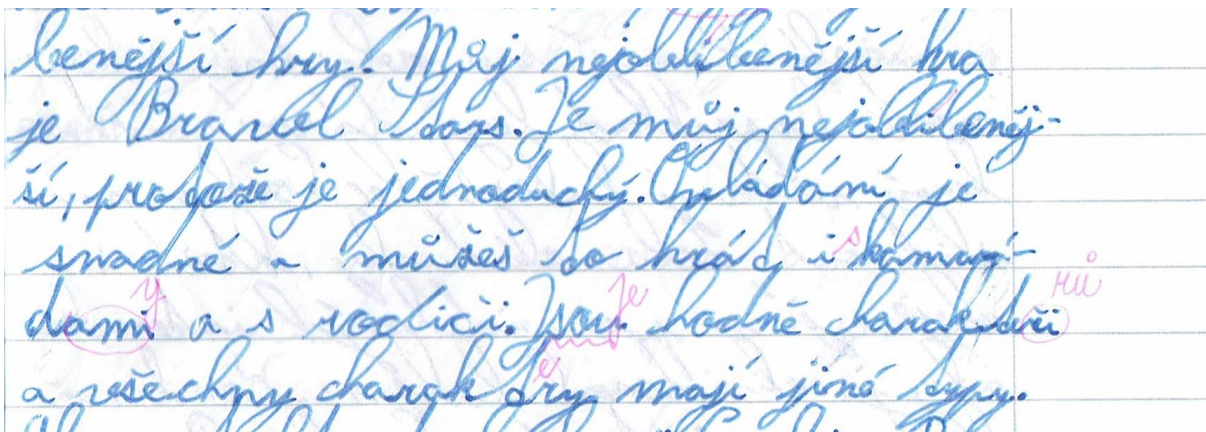 benější hry. Můj nejoblibenější hra
je Brawl Stars. Je můj nejoblibeněj-
ší, protože je jednoduchý. Ovládání je
snadné a můžeš to hrát i s kamará-
dami y a s rodiči. Jsou Je hodně charakteři rů
a všechny charaktery mají jiné typy.